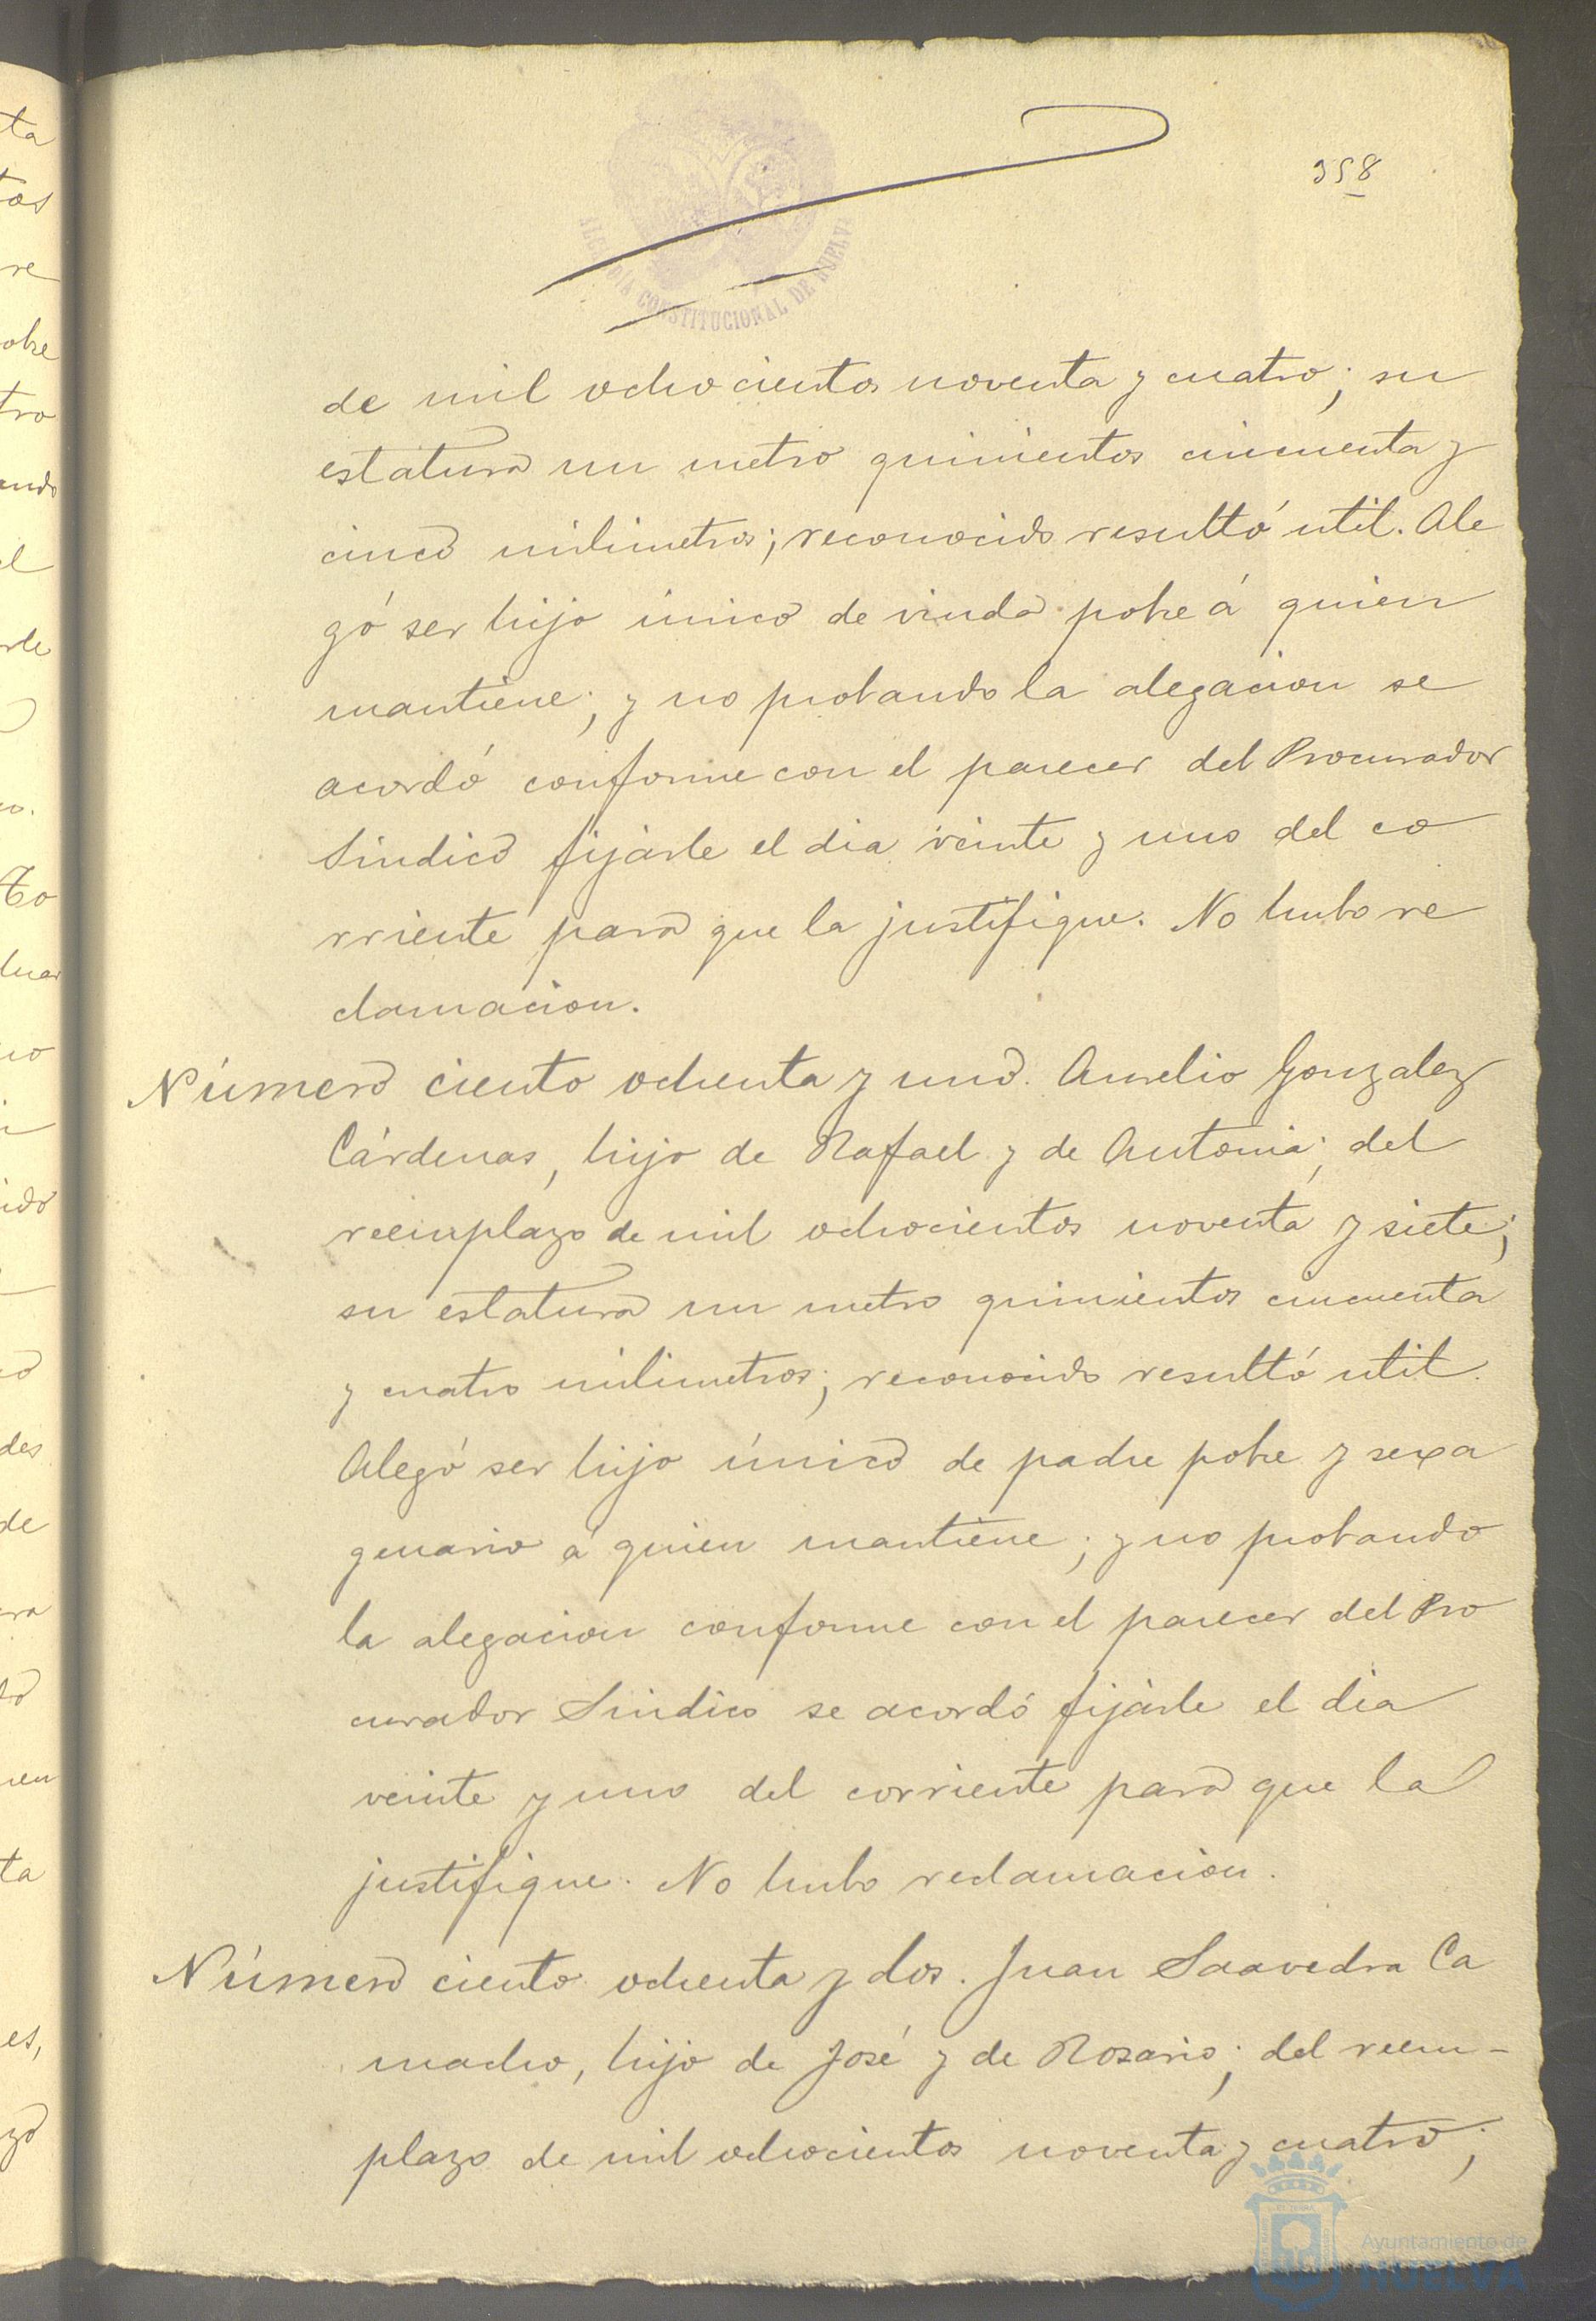 358
ALCALDIA CONSTITUCIONAL DE HUELVA
de mil ochocientos noventa y cuatro; su
estatura un metro quinientos cincuenta y
cinco milimetros; reconocido resultó util. Ale
gó ser hijo único de viuda pobre á quien
mantiene; y no probando la alegacion se
acordó conforme con el parecer del Procurador
Sindico fijarle el dia veinte y uno del co
rriente para que la justifique. No hubo re
clamacion.
Número ciento ochenta y uno. Aurelio Gonzalez
Cárdenas, hijo de Rafael y de Antonia; del
reemplazo de mil ochocientos noventa y siete;
su estatura un metro quinientos cincuenta
y cuatro milimetros; reconocido resultó util.
Alegó ser hijo único de padre pobre y sexa
genario á quien mantiene; y no probando
la alegacion conforme con el parecer del Pro
curador Sindico se acordó fijarle el dia
veinte y uno del corriente para que la
justifique. No hubo reclamacion.
Número ciento ochenta y dos. Juan Saavedra Ca
macho, hijo de José y de Rosario; del reem-
plazo de mil ochocientos noventa y cuatro;
Ayuntamiento de
HUELVA